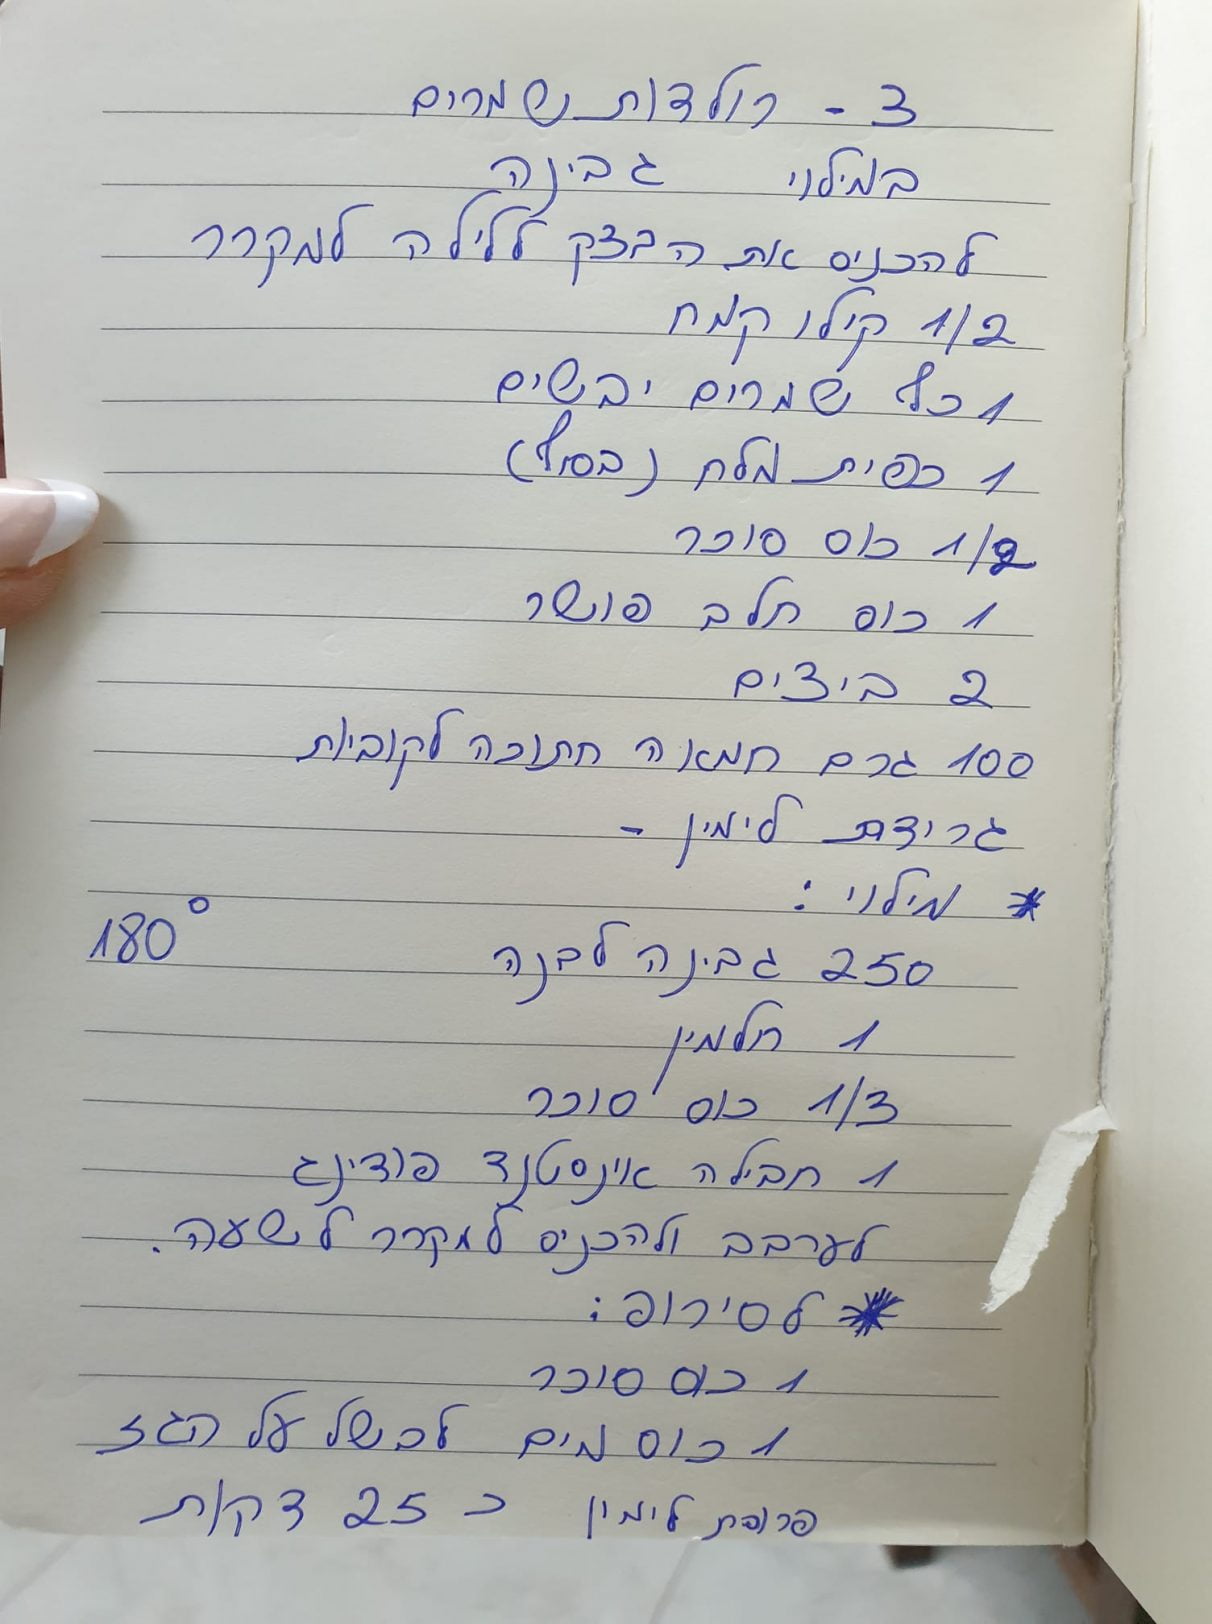 3 - רולדות שמרים
במילוי גבינה
להכניס את הבצק ללילה למקרר
1/2 קילו קמח
1 כף שמרים יבשים
1 כפית מלח (בסוף)
1/2 כוס סוכר
1 כוס חלב פושר
2 ביצים
100 גרם חמאה חתוכה לקוביות
גרידת לימין -
* מילוי :
180°
250 גבינה לבנה
1 חלמין
1/3 כוס סוכר
1 חבילה אינסטנד פודינג
לערבב ולהכניס למקרר לשעה.
* לסירופ :
1 כוס סוכר
1 כוס מים לבשל על הגז
פרוסת לימין כ 25 דקות